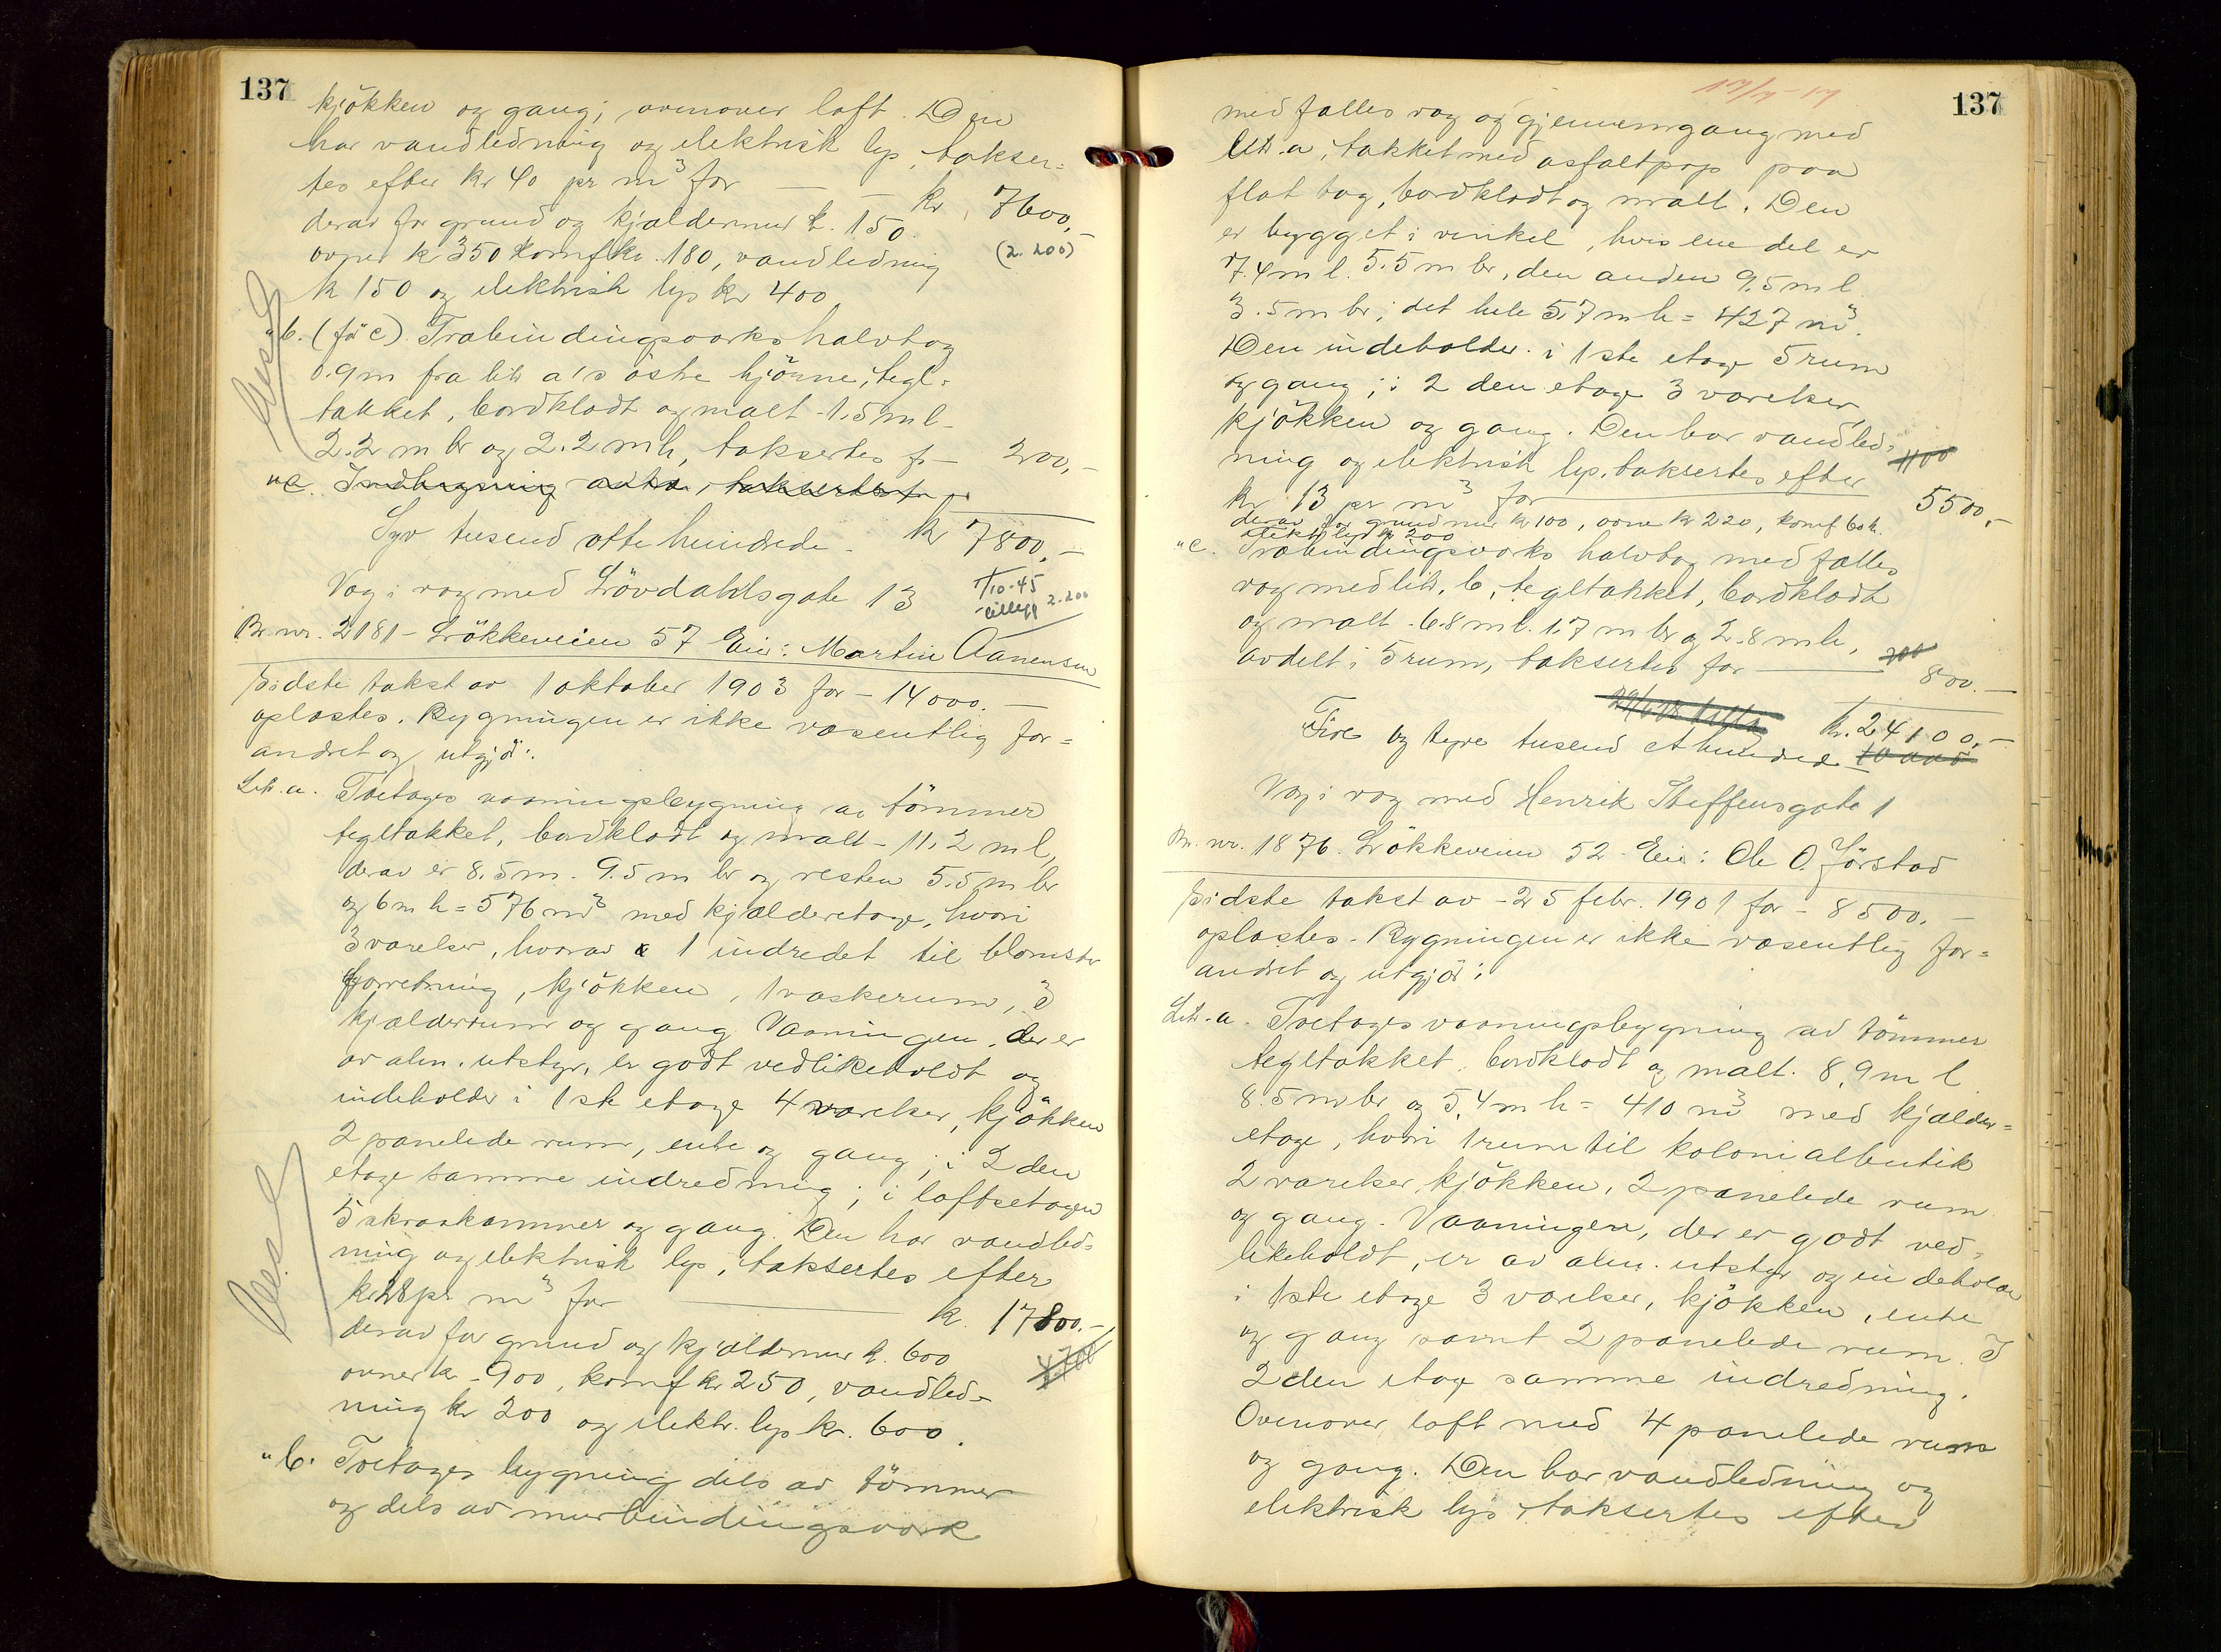 137
kjökken og gang; ovenover loft. Den
har vandledning og elektrisk lys, takser=
tes efter kr 40 pr m³ for — — kr. 7600,-
derav for grund og kjældermur k. 150.
(2.200)
ovner k 350 komf kr. 180, vandledning
k 150 og elektrisk lys kr 400
"b. (för c) Træbindingsverks halvtag
0.9m fra litr a's östre hjörne, tegl=
tækket, bordklædt og malt - 1,5 m l -
2.2 m br og 2.2 m h, taksertes fr — 200,-
"c. Indhegning takseres f
Syv tusend otte hundrede - kr 7800,-
Væg i væg med Lövdahlsgate 13
1/10-45
tillegg 2.200
Br. nr. 2181 - Lökkeveien 57 Eier: Martin Aanensen
Sidste takst av 1 oktober 1903 for - 14000. —
oplæstes. Bygningen er ikke væsentlig for=
andret og utgjör:
Litr. a. Toetages vaaningsbygning av tömmer
tegltækket, bordklædt og malt - 11,2 m l,
derav er 8.5 m. 9.5 m br og resten 5.5 m br
og 6 m h = 576 m³ med kjælderetage, hvori
3 værelser, hvorav 1 indredet til blomster
forretning, kjökken, 1 vaskerum, 3
kjælderrum og gang Vaaningen, der er
av alm. utstyr, er godt vedlikeholdt og
indeholder i 1ste etage 4 værelser, kjökken
2 panelede rum, entre og gang; i 2 den
etage samme indredning; i loftsetagen
5 skraakammer og gang. Den har vandled=
ning og elektrisk lys, taksertes efter
kr 28 pr m³ for — k. 17800.-
derav for grund og kjældermur k. 600
4700
ovner kr - 900, komf kr 250, vandled=
ning kr 200 og elektr. lys kr. 600.
"b. Toetages bygning dels av tömmer
og dels av murbindingsverk
17/7-19
137
med fælles væg og gjennemgang med
litr. a, tækket med asfaltpap paa
flat tag, bordklædt og malt. Den
er bygget i vinkel, hvis ene del er
7.4 m l. 5.5 m br, den anden 9.5 m l
3.5 m br; det hele 5.7 m h = 427 m³.
Den indeholder i 1ste etage 5 rum
og gang; i 2 den etage 3 værelser,
kjökken og gang. Den har vandled=
1100
ning og elektrisk lys, taksertes efter
kr. 13 pr m³ for — 5500,-
derav for grundmur kr 100, ovne kr 220, komf. 60 k.
elektr. lys kr 200
"c. Træbindingsverks halvtag med fælles
væg med litr. b, tegltækket, bordklædt
og malt - 6.8 m l. 1.7 m br og 2.8 m h,
avdelt i 5 rum, taksertes for — 800.-
200
kr. 24100,-
Fire og tyve tusend et hundrede — 10000
Væg i væg med Henrik Steffensgate 1
Br. nr. 1876. Lökkeveien 52 - Eier: Ole O. Jörstad
Sidste takst av - 25 febr. 1901 for - 8500. —
oplæstes - Bygningen er ikke væsentlig for=
andret og utgjör:
Litr. a. Toetages vaaningsbygning av tömmer
tegltækket, bordklædt og malt. 8,9 m l
8.5 m br og 5.4 m h = 410 m³ med kjælder=
etage, hvori 1 rum til kolonialbutik
2 værelser kjökken, 2 panelede rum
og gang. Vaaningen, der er godt ved=
likeholdt, er av alm. utstyr og indeholder
i 1ste etage 3 værelser, kjökken, entre
og gang samt 2 panelede rum. I
2 den etage samme indredning.
Ovenover loft med 4 panelede rum
og gang. Den har vandledning og
elektrisk lys, taksertes efter